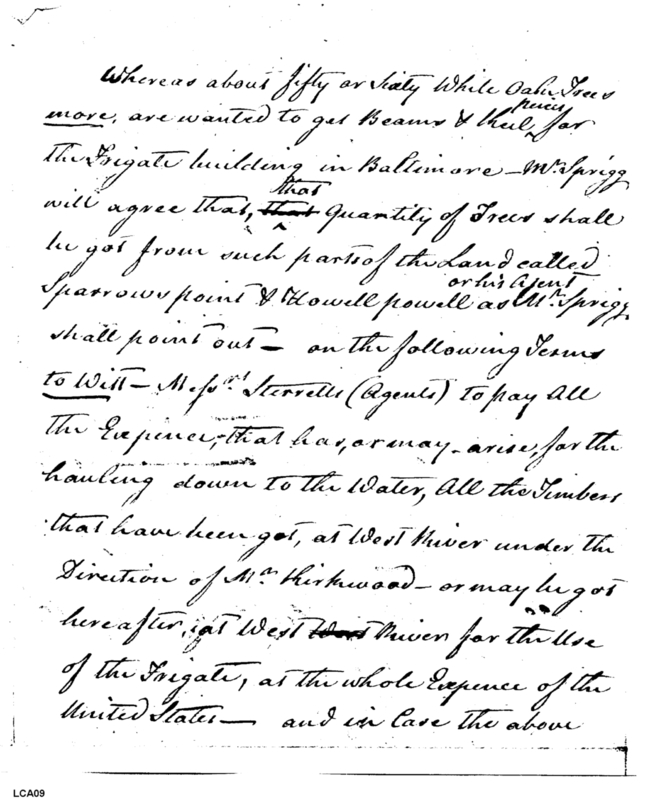 Whereas about fifty or Sixty White Oake Trees
more, are wanted to get Beams & Keel pieces for
the Frigate building in Baltimore – Mr Sprigg
will agree that, that that Quantity of Trees shall
be got from such parts of the Land called
Sparrows point & Howell powell as Mr Sprigg or his Agent
shall point out – on the following Terms
to Witt – Messrs Sterretts (Agents) to pay All
the Expence, that has, or may arise, for the
hauling down to the Water, All the Timbers
that have been got, at West River under the
Direction of Mr Kirkwood – or may be got
hereafter, at West River for the Use
of the Frigate, at the whole Expence of the
United States – and in Case the above
LCA09